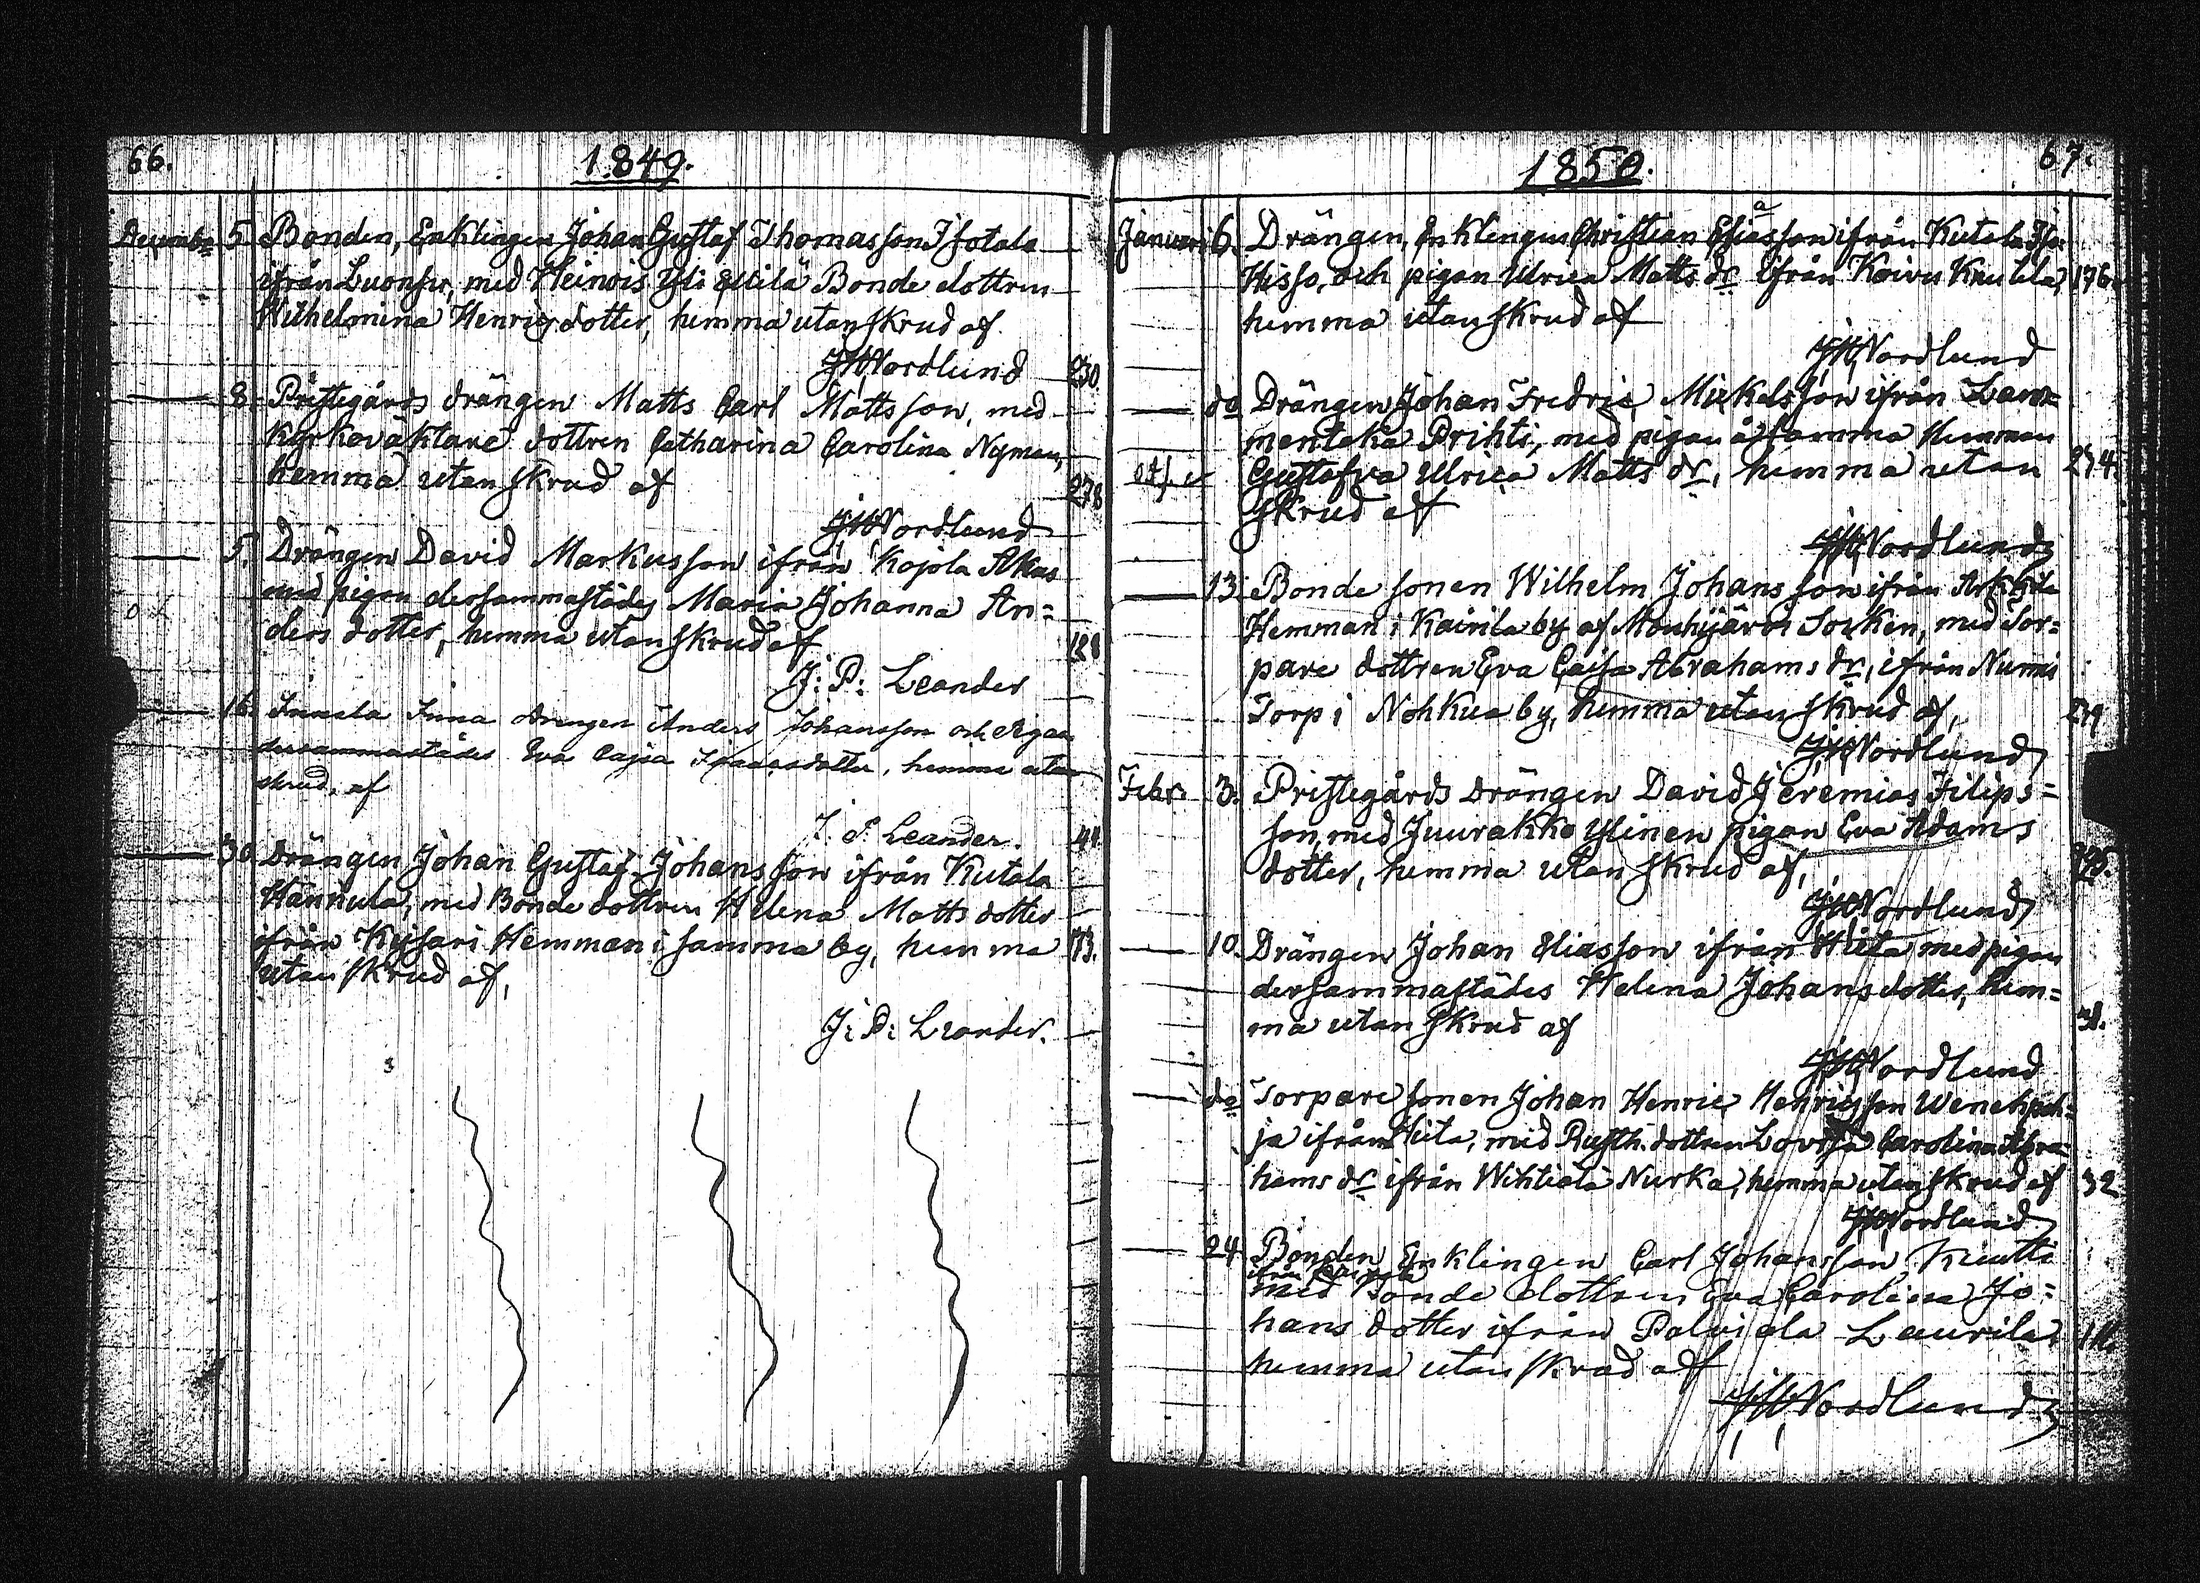 66.
1849.
December 5. Bonden, Enklingen Johan Gustaf Thomasson Isotalo
ifrån Luonsu, med Heinois Yli Ellilä Bonde dottren
Wilhelmina Henricsdotter, hemma utan skrud af
JWNordlund 230.
8. Prestegårds drängen Matts Carl Mattsson, med
Kyrkovaktare dottren Catharina Carolina Nyman,
hemma utan skrud af 278
JWNordlund
5. Drängen David Markusson ifrån Kojola Akas
med pigan dersammastädes Maria Johanna An=
ders dotter, hemma utan skrud af
J: P: Leander
16. drengen Anders Johansson och Pigan
dersammastädes Eva Cajsa Isaacsdotter, hemma utan
skrud, af
J. P. Leander. 44
30. Drängen Johan Gustaf Johansson ifrån Kutala
Hannula, med Bonde dottren Helena Matts dotter
ifrån Keysari Hemman i samma by, hemma 173.
utan skrud af,
J: P: Leander.
67.
1850.
Januari 6. Drängen, Enklingen Christian Eliasson ifrån Kutala Iso
Hisso, och pigan Ulrica Matts dr ifrån Koivu Knutila, 176.
hemma utan skrud af
JWNordlund
do Drängen Johan Fredric Mickelsson ifrån Lam=
menteka Prihti, med pigan å samma Hemman
Gustafva Ulrica Matts dr, hemma utan 274.
skrud af
JWNordlund
13. Bonde sonen Wilhelm Johansson ifrån Arkkila
Hemman i Kairila by af Mouhijärvi Socken, med Tor=
pare dottren Eva Cajsa Abrahams dr, ifrån Numi
Torp i Nohkua by, hemma utan skrud af,
JWNordlund
Febr. 3. Prestegårds Drängen David Jeremias Filips=
son, med Juurakko Ylinen pigan Eva Adams
dotter, hemma utan skrud af,
JWNordlund
10. Drängen Johan Eliasson ifrån Hiita med pigan
dersammastädes Helena Johansdotter, hem=
ma utan skrud af 31.
JWNordlund
do Torpare sonen Johan Henric Henricsson Wenehpoh=
ja ifrån Hiita, med Rusth. dottren Lovisa Carolina Abra=
hams dr ifrån Wihtiala Nurka, hemma utan skrud af 32
JWNordlund
24. Bonden Enklingen Carl Johansson Knutti
med Bonde dottren Eva Carolina Jo=
hans dotter ifrån Palviala Laurila,
hemma utan skrud af
JWNordlund